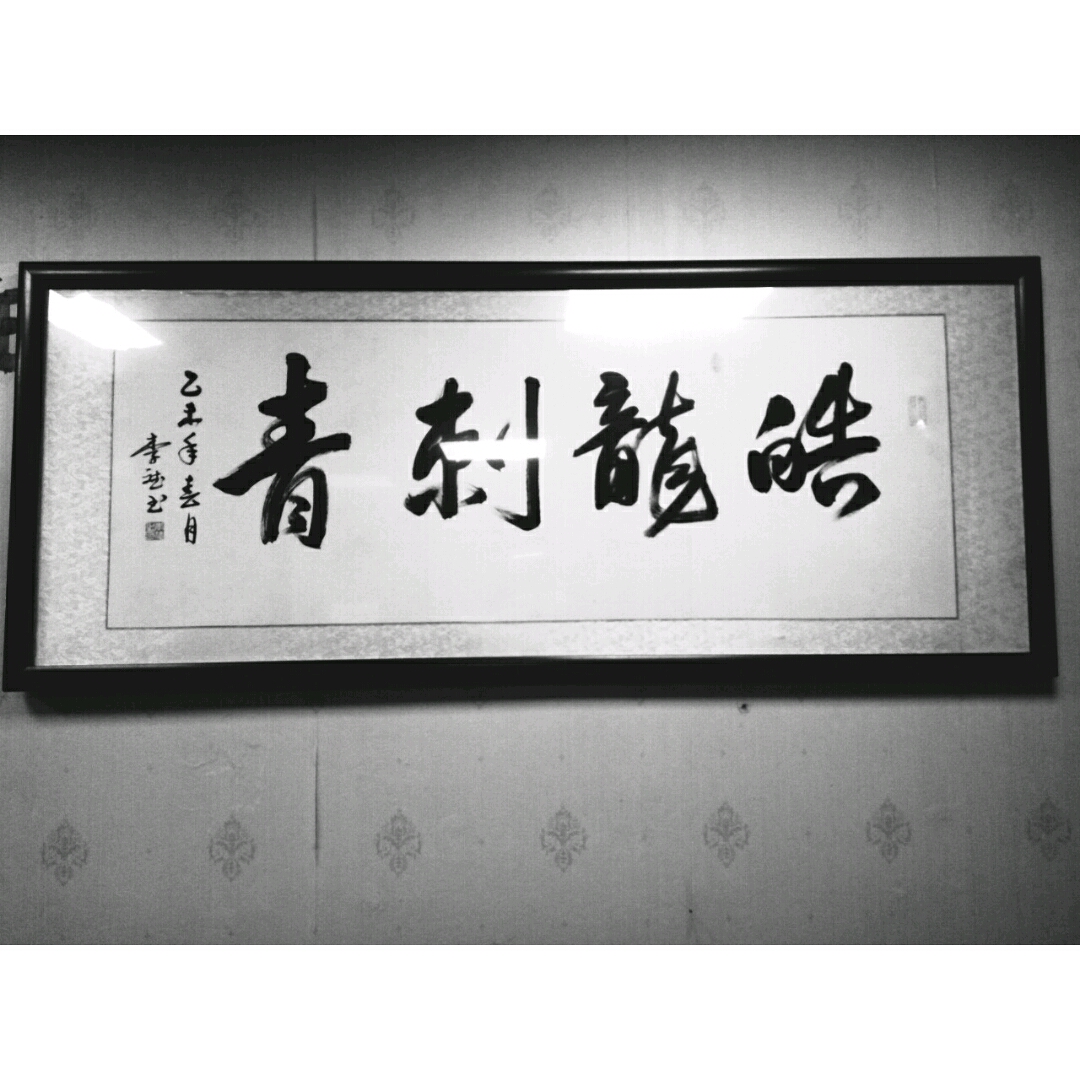 皓龍刺青
乙未年春月
李 书